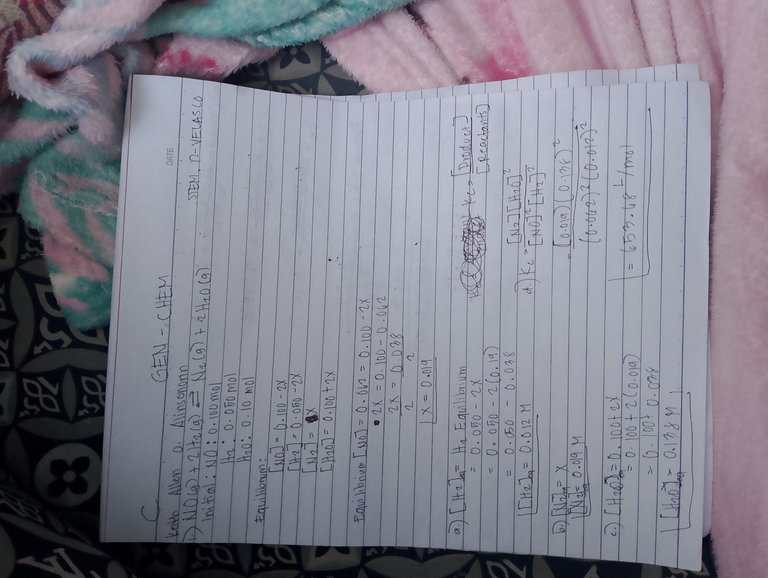 C
GEN-CHEM
DATE
STEM 12-VELASCO
1) NO(g) + 2H2(g) ⇌ N2(g) + 2H2O(g)
Initial: NO: 0.100 mol
H2: 0.050 mol
H2O: 0.10 mol
Equilibrium:
[NO] = 0.100 - 2x
[H2] = 0.050 - 2x
[N2] = x
[H2O] = 0.100 + 2x
Equilibrium [NO] = 0.062 = 0.100 - 2x
2x = 0.100 - 0.062
2x = 0.038
2 2
x = 0.019
a) [H2]eq = H2 Equilibrium
= 0.050 - 2x
= 0.050 - 2(0.19)
= 0.050 - 0.038
[H2]eq = 0.012 M
b) [N2]eq = x
[N2] = 0.019 M
c) [H2O]eq = 0.100 + 2x
= 0.100 + 2(0.019)
= 0.100 + 0.038
[H2O]eq = 0.138 M
Kc = [Product]
[Reactants]
d) Kc = [N2][H2O]²
[NO]²[H2]²
= (0.019)(0.138)²
(0.062)²(0.012)²
= 653.68 L/mol